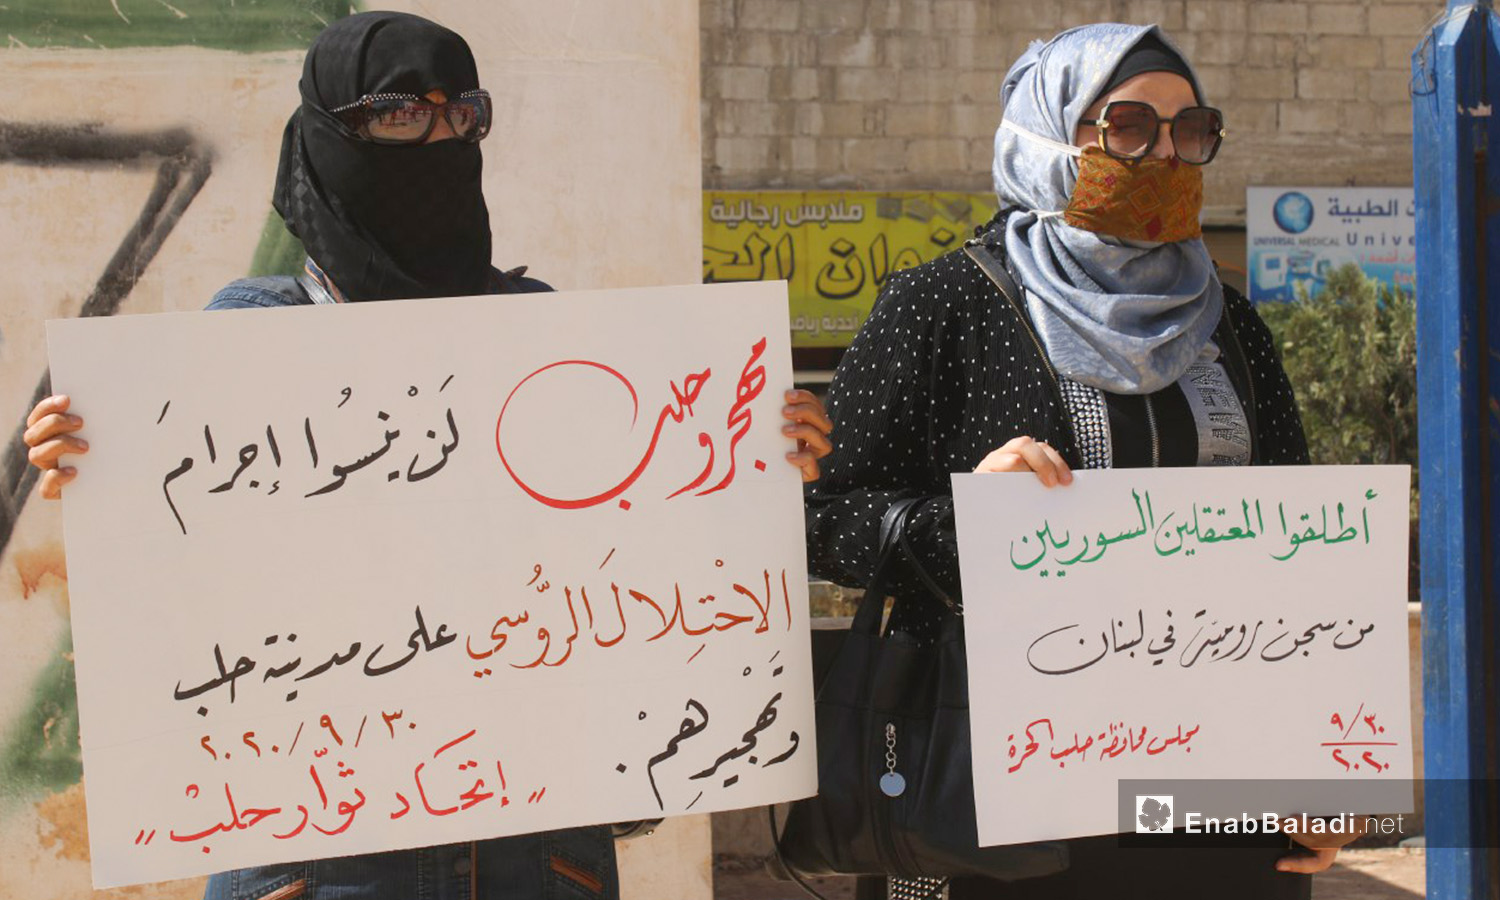 مهجرو حلب لَنْ ينسُوا إجرامَ
الاحْتِلالَ الرُّوسي على مدينة حلب
وتَهْجيرِهمْ.
٢٠٢٠/٩/٣٠
" إتحَاد ثوّار حلبْ "
أطلقوا المعتقلين السوريين
من سجن رومية في لبنان
٩/٣٠
٢٠٢٠
مجلس محافظة حلب الحرة
ملابس رجالية
احذية
الطبية
UNIVERSAL MEDICAL
EnabBaladi.net